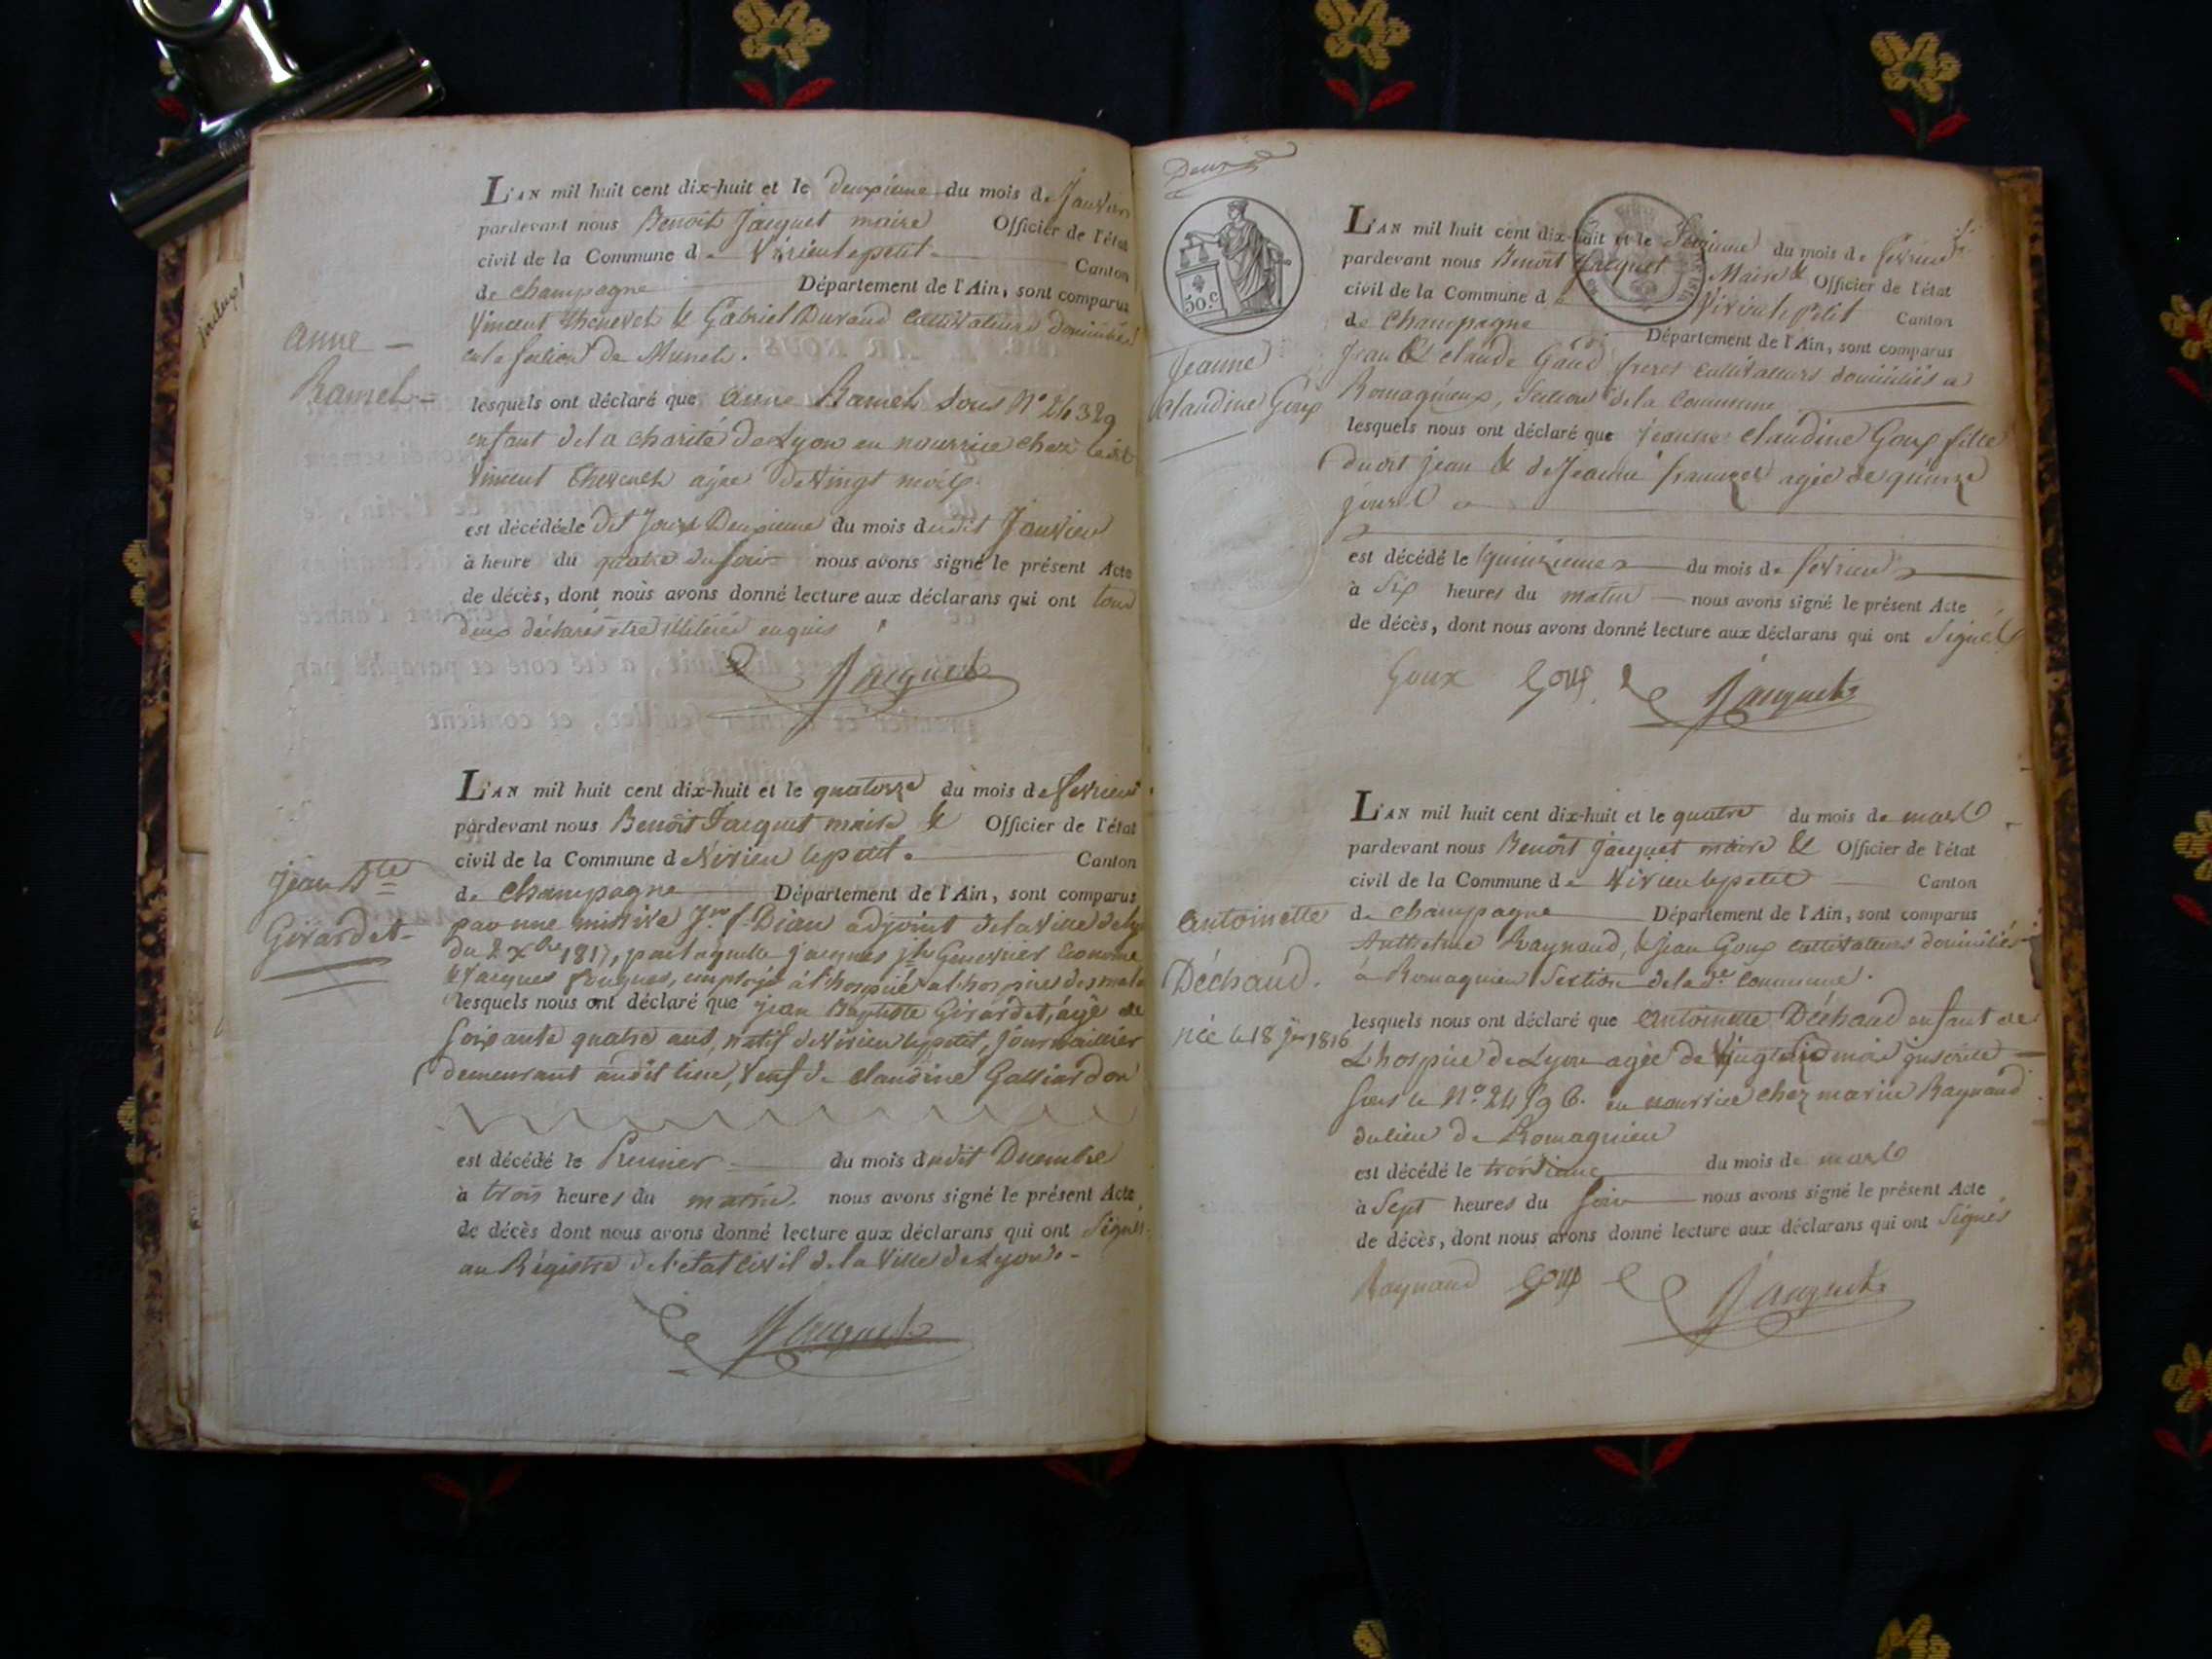 L'AN mil huit cent dix-huit et le deuxieme du mois de Janvier
pardevant nous Benoit Jacquet maire Officier de l'état
civil de la Commune de Virieu le petit Canton
de Champagne Département de l'Ain, sont comparus
Vincent Thenevet & Gabriel Durand Cultivateurs domiciliés
section de Munet.
Anne
Ramel
lesquels ont déclaré que Anne Ramel sous N° 24329
enfant de la charité de Lyon en nourrice chez ledit
Vincent agée de vingt mois
est décédée le dit Jour Deuxieme du mois dudit Janvier
à heure du quatre du soir nous avons signé le présent Acte
de décès, dont nous avons donné lecture aux déclarans qui ont tous
deux déclarés être enquis
Jacquet
L'AN mil huit cent dix-huit et le quatorze du mois de fevrier
pardevant nous Benoit Jacquet maire & Officier de l'état
civil de la Commune d Virieu le petit Canton
Jean Bte
Girardet
de Champagne Département de l'Ain, sont comparus
par une missive Dian adjoint de la Ville de
du 2 Xbre 1817, par laquelle Jacques jh Genevrier Econome
& Jacques employé à l'hospice
lesquels nous ont déclaré que Jean Baptiste Girardet, âgé de
soixante quatre ans, natif de Virieu le petit, journaillier
demeurant audit lieu, veuf de Claudine Galliardon
est décédé le Premier du mois dudit Decembre
à trois heures du matin nous avons signé le présent Acte
de décès dont nous avons donné lecture aux déclarans qui ont signés
au Régistre de l'état civil de la Ville de Lyon
Jacquet
50.c
L'AN mil huit cent dix-huit et le Seizieme du mois de fevrier
pardevant nous Benoit Jacquet Maire & Officier de l'état
civil de la Commune d Virieu le Petit Canton
de Champagne Département de l'Ain, sont comparus
Jeanne
Claudine Goux
Jean & Claude freres cultivateurs domiciliés a
Romagnieux, Section de la Commune
lesquels nous ont déclaré que Jeanne Claudine Goux fille
dudit Jean & de Jeanne agée de quinze
jours
est décédé le quinzieme du mois de fevrier
à Six heures du matin nous avons signé le présent Acte
de décès, dont nous avons donné lecture aux déclarans qui ont Signé
Goux Goux Jacquet
L'AN mil huit cent dix-huit et le quatre du mois de mars
pardevant nous Benoit Jacquet maire & Officier de l'état
civil de la Commune de Virieu le petit Canton
Antoinette
Déchaud.
née le 18 1816
de Champagne Département de l'Ain, sont comparus
Anthelme Raynaud, & Jean Goux cultivateurs domiciliés
à Romagnieu Section de lade Commune.
lesquels nous ont déclaré que Antoinette Déchaud enfant de
L'hospice de Lyon agée de mois inscrite
sous le N° 24 en nourrice chez marie Raynaud
du lieu de Romagnieu
est décédé le troisieme du mois de mars
à Sept heures du soir nous avons signé le présent Acte
de décès, dont nous avons donné lecture aux déclarans qui ont Signés
Raynaud Goux Jacquet